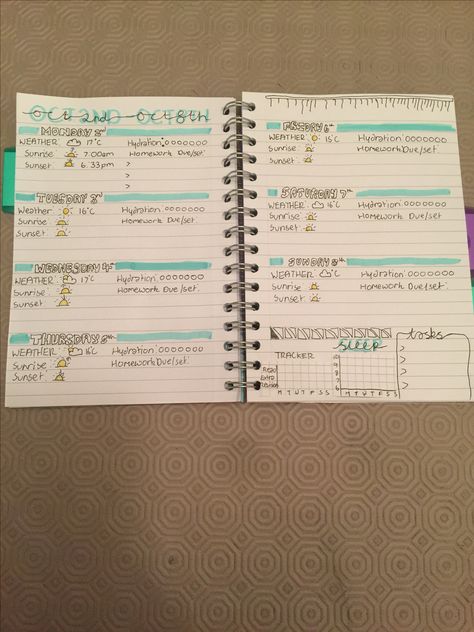 OCT 2ND - OCT 8TH
oct 2nd - oct 8th
MONDAY 2nd
WEATHER: 17°C Hydration: ooooooo
Sunrise: 7:00am Homework Due/set:
Sunset: 6:33pm >
>
>
TUESDAY 3rd
Weather: 16°C Hydration: ooooooo
Sunrise: Homework Due/set:
Sunset:
WEDNESDAY 4th
WEATHER: 17°C Hydration: ooooooo
Sunrise: Homework Due/set:
Sunset:
THURSDAY 5th
WEATHER: 16°C Hydration: ooooooo
Sunrise: Homework Due/set:
Sunset:
FRIDAY 6th
WEATHER: 15°C Hydration: ooooooo
Sunrise: Homework Due/set:
Sunset:
SATURDAY 7th
WEATHER: 16°C Hydration: ooooooo
Sunrise: Homework Due/set:
Sunset:
SUNDAY 8th
WEATHER: °C Hydration: ooooooo
Sunrise: Homework Due/set:
Sunset:
TRACKER
Read
M T W T F S S
sleep
10
9
8
7
6
M T W T F S S
tasks
>
>
>